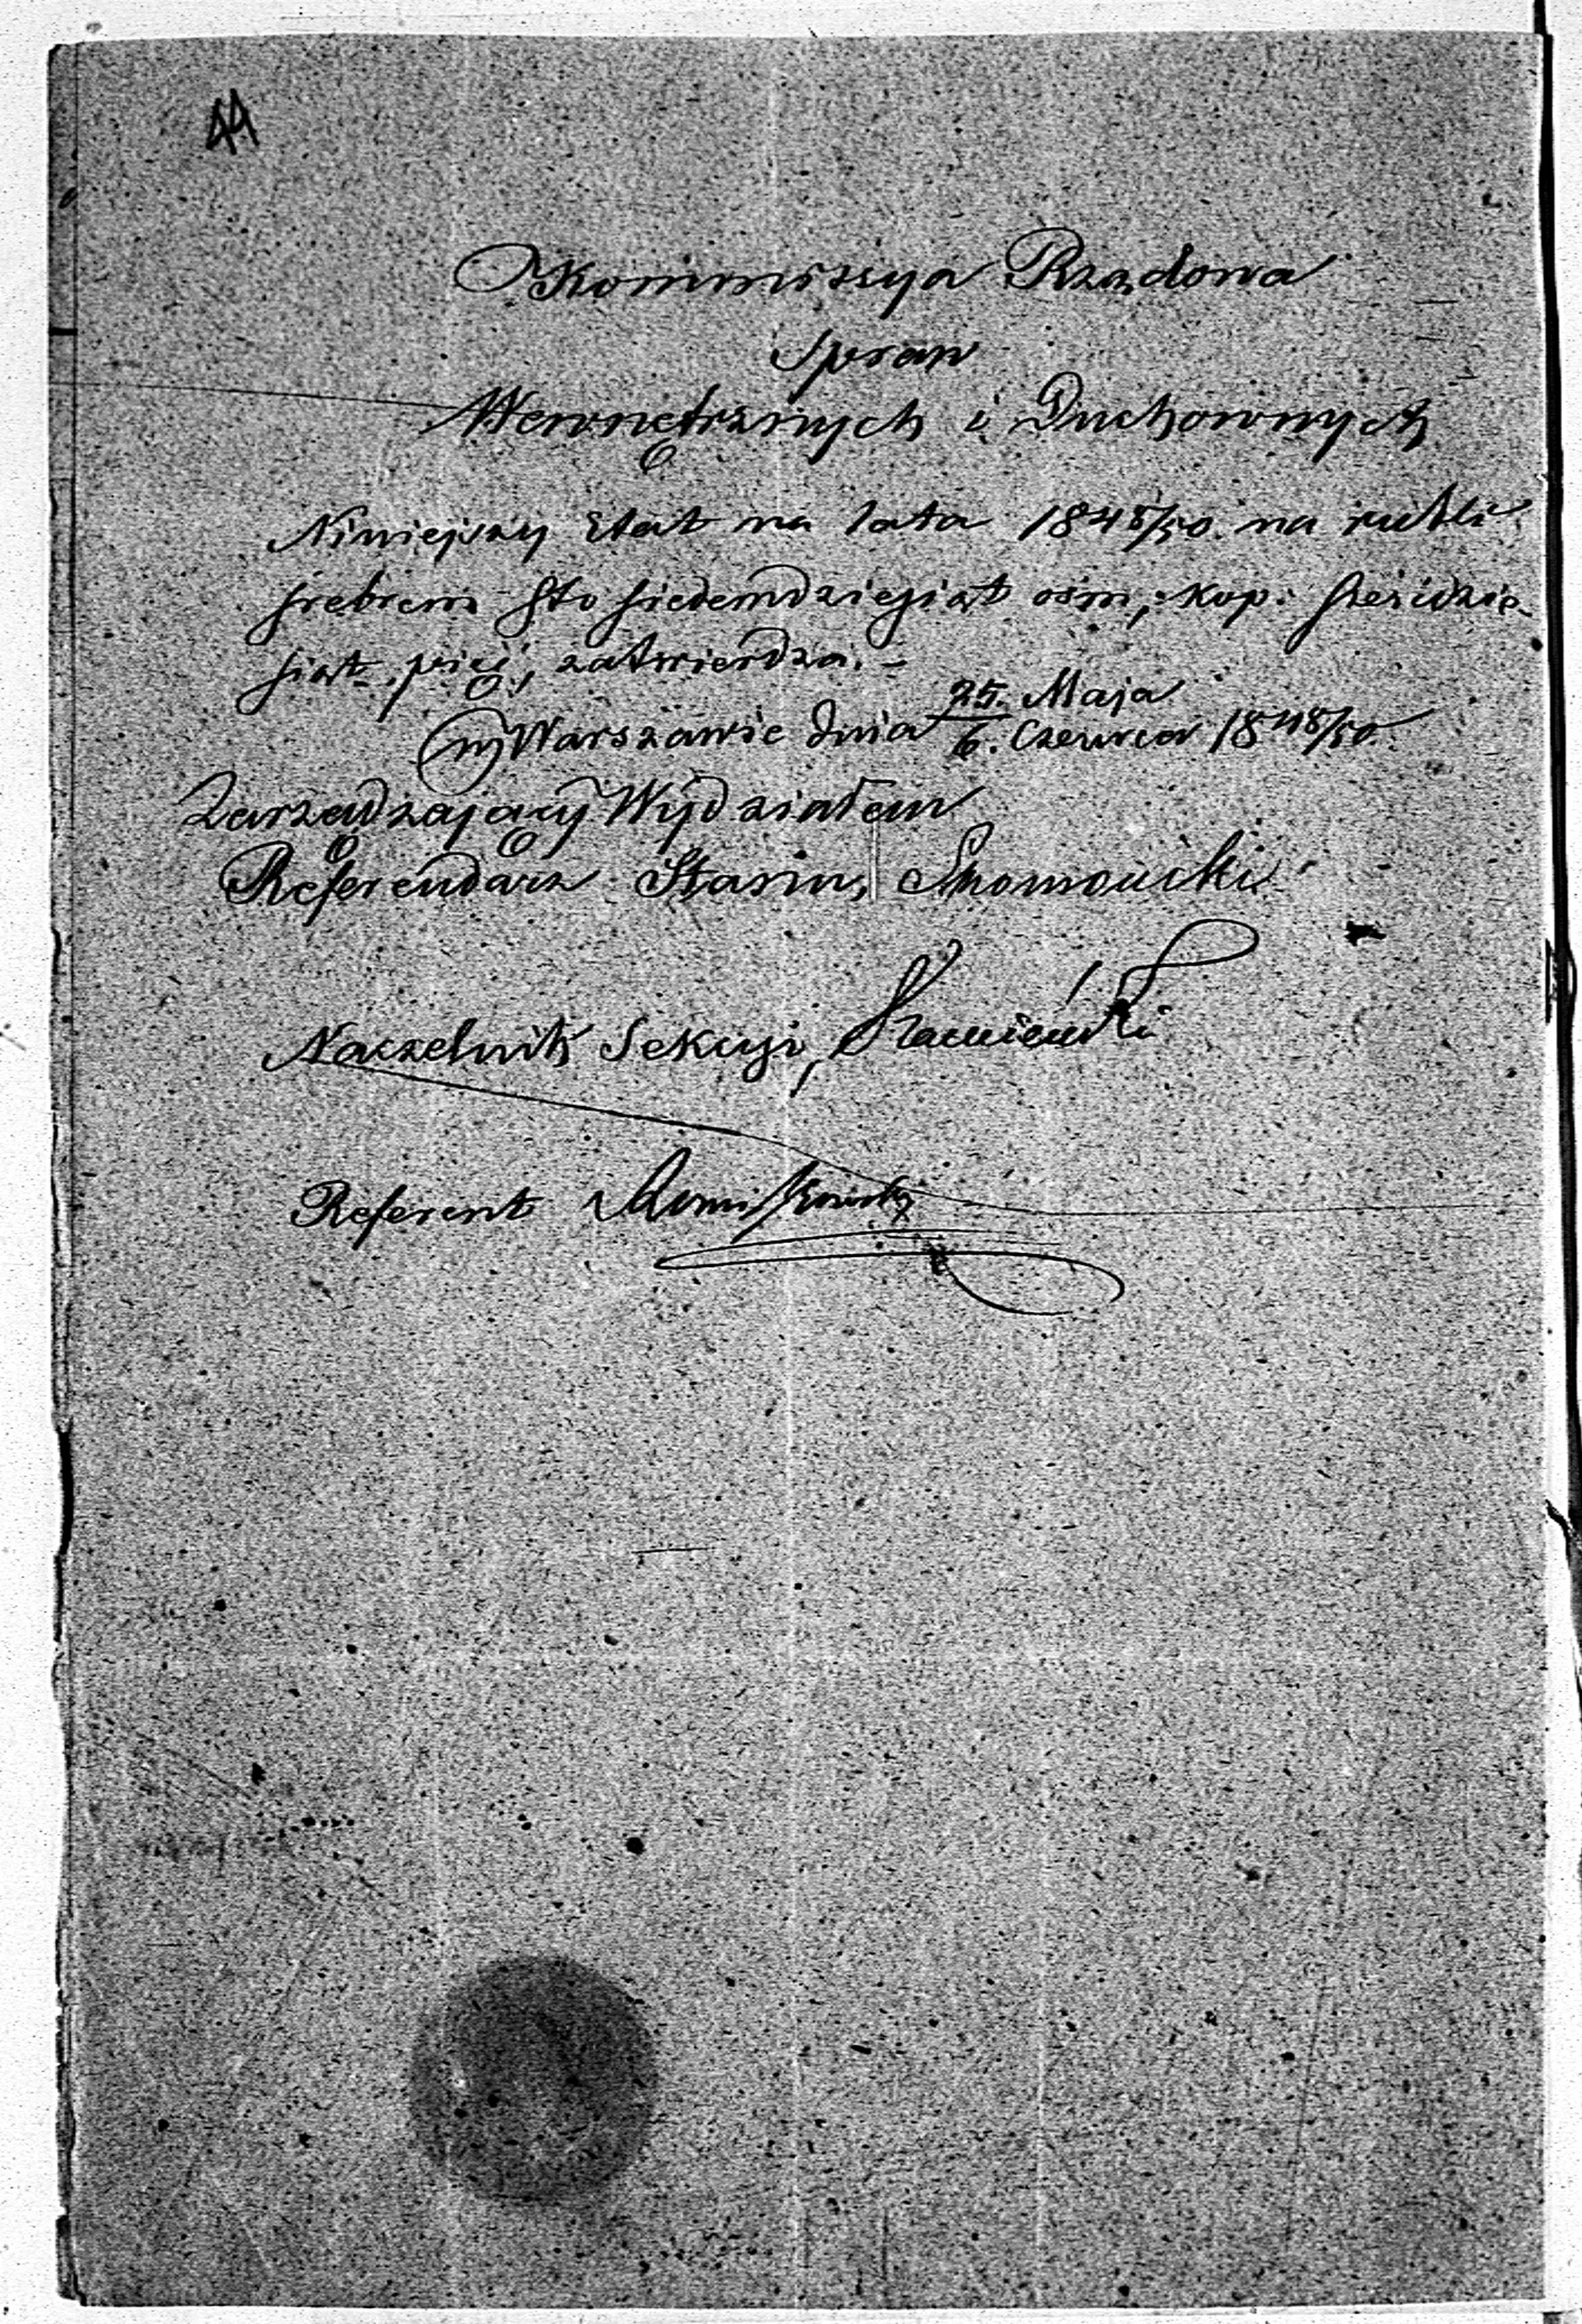 44
Kommissya Rządowa
Spraw
Wewnętrznych i Duchownych
Niniejszy Etat na lata 1848/50. na rubli
srebrem sto siedemdziesiąt ośm, kop: sześćdzie-
siąt pięć, zatwierdza. -
w Warszawie dnia 25. Maja
6. Czerwca 1848/50.
Zarządzający Wydziałem
Referendarz Stanu,
Naczelnik Sekcyi,
Referent